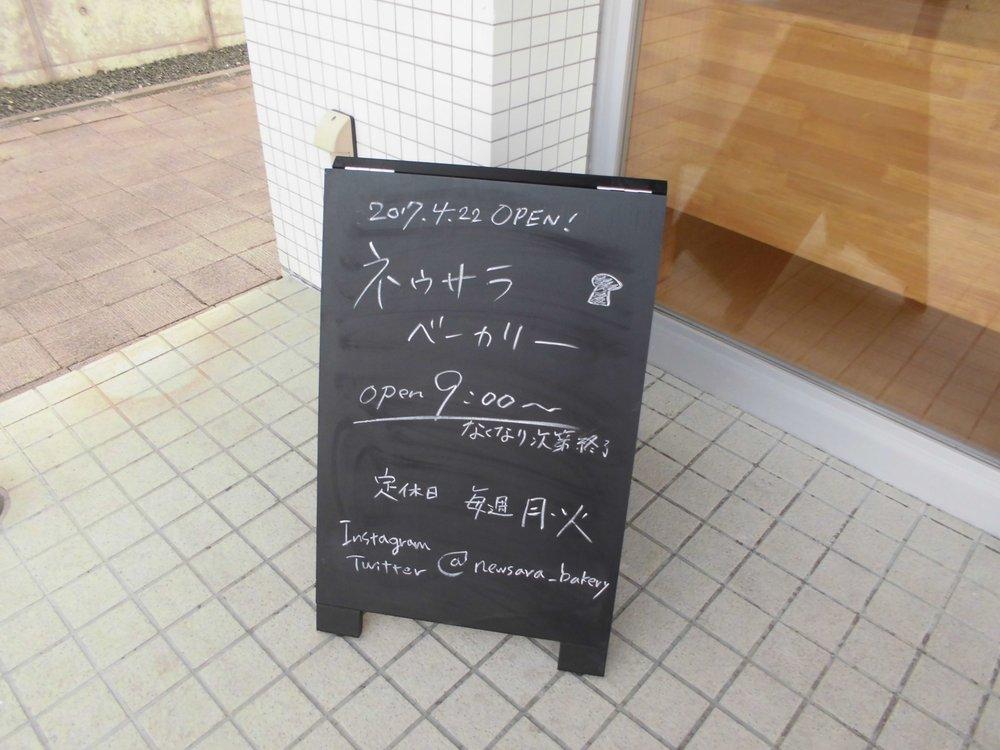 2017.4.22 OPEN!
ネゥサラ
ベーカリー
open 9:00～
なくなり次第終了
定休日 毎週月・火
Instagram
Twitter @newsara_bakery